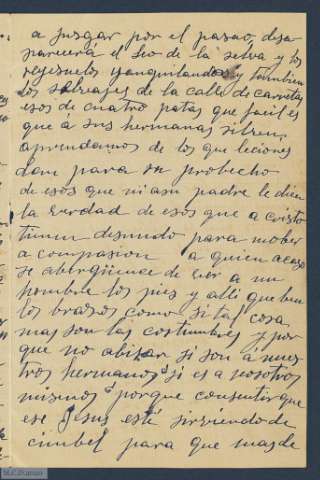 a jusgar por el pasao, desa
parecerá el leo de la selva y los
reyesuelos yanquilandos y tambien
los salbajes de la calle de carretas
esos de cuatro patas que facil es
que á sus hermanas silven,
aprendamos de los que leciones
dan para su probecho
de esos que ni asu padre le dicen
la verdad de esos que a cristo
tienen desnudo para mober
a compasion a quien acaso
se abergüence de ver a un
hombre los pies y alli que ben
los brasos como si tal cosa
mas son las costumbres y por
que no abisar si son a nues
tros hermanos ó si es a nosotros
mismos ó porque consentir que
ese Jesus esté sirviendo de
cimbel para que mas de